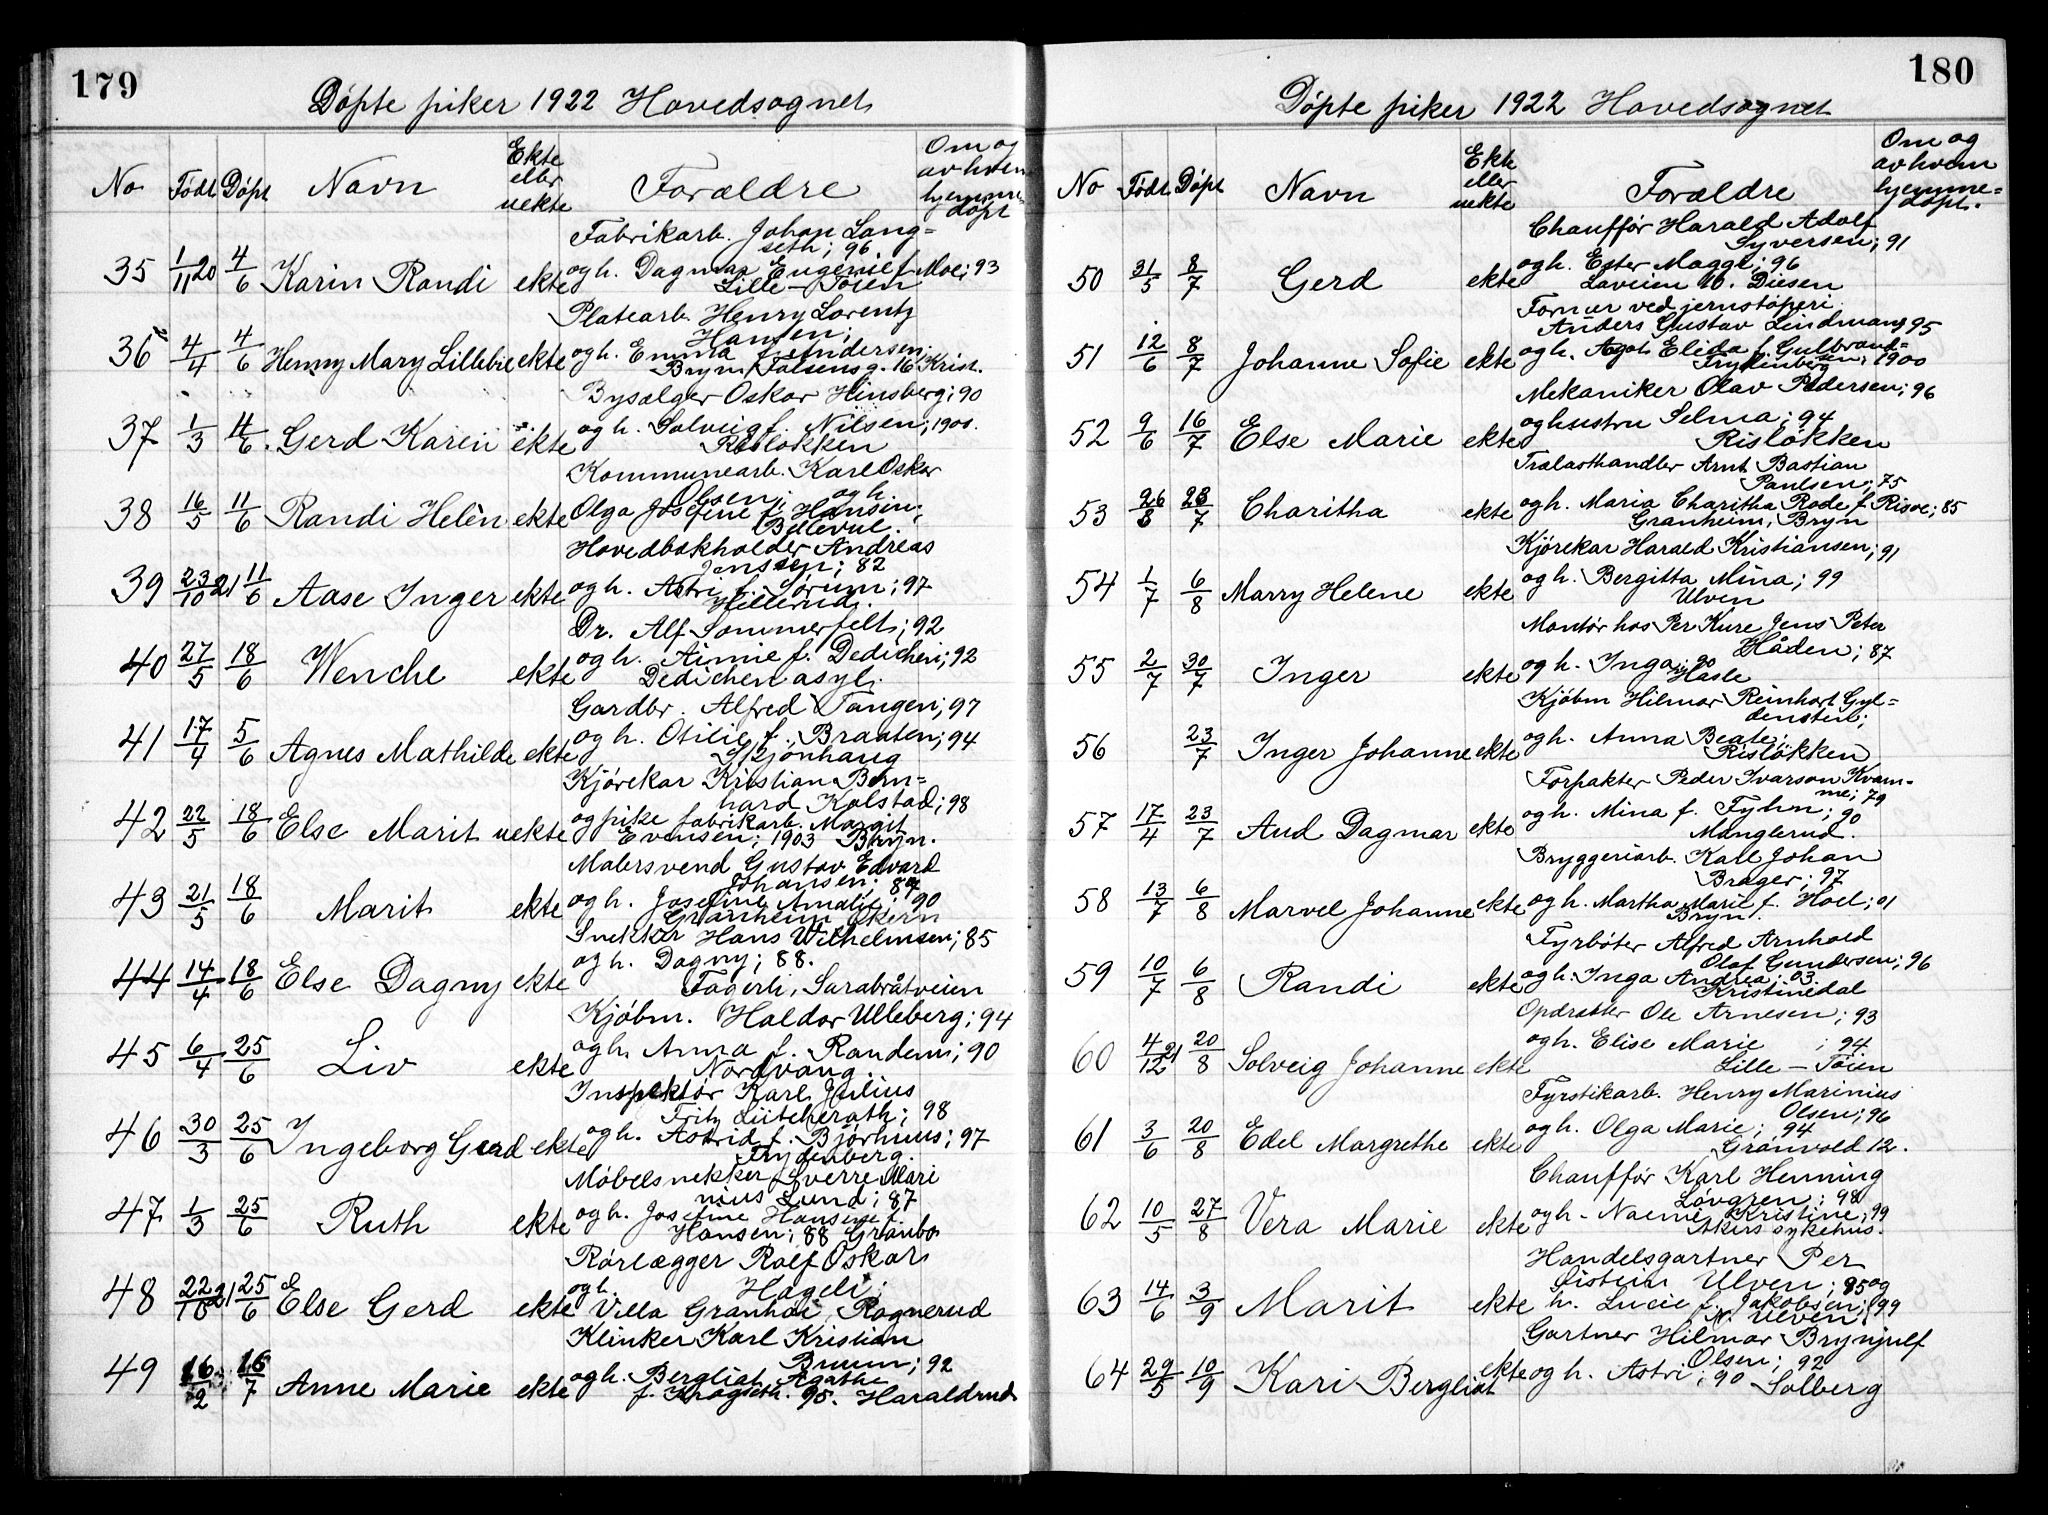 179
Döpte piker 1922 Hovedsognet
No Född Döpt Navn Ekte eller uekte Forældre Om og av hvem hjemmedöpt
Fabrikarb. Johan Lang=
seth; 96
35 1/11 20 4/6 Karin Randi ekte og h. Dagmar Eugenie f. Moe; 93
Lille-Töien
Platearb. Henry Lorentz
Hansen;
36 4/4 4/6 Henny Mary Lillebie ekte og h. Emma f. Andersen.
Bryn Falsensg. 16 Krist.
Bysælger Oskar Hinsberg; 90
37 1/3 4/6 Gerd Karin ekte og h. Solveig f. Nilsen; 1900.
Rislökken
Kommunearb. Karl Oskar
Olsen; og h.
38 16/5 11/6 Randi Helèn ekte Olga Josefine f. Hansen;
Bellevue.
Hovedbokholder Andreas
Jenssen; 82
39 23/10 21 11/6 Aase Inger ekte og h. Astri f. Sörum; 97
Hillerud.
Dr. Alf Sommerfelt; 92
40 27/5 18/6 Wenche ekte og h. Aimie f. Dedichen; 92
Dedichen asyl.
Gardbr. Alfred Tangen; 97
41 17/4 5/6 Agnes Mathilde ekte og h. Otilie f. Braaten; 94
Bjönhaug
Kjörekar Kristian Bern=
hard Kolstad; 98
42 22/5 18/6 Else Marit uekte og pike fabrikarb. Margit
Evensen; 1903 Bryn.
Malersvend Gustav Edvard
Johansen; 87
43 21/5 18/6 Marit ekte og h. Josefine Amalie; 90
Granheim Ökern
Snekker Hans Wilhelmsen; 85
44 14/4 18/6 Else Dagny ekte og h. Dagny; 88.
Fagerli, Sarabråtveien
Kjöbm. Haldor Ulleberg; 94
45 6/4 25/6 Liv ekte og h. Anna f. Randem; 90
Nordvang.
Inspektör Karl Julius
Fritz Lütcherath; 98
46 30/3 25/6 Ingeborg Gerd ekte og h. Astrid f. Björhuus; 97
Frydenberg.
Möbelsnekker Sverre Mari
nius Lund; 87
47 1/3 25/6 Ruth ekte og h. Josefine Hansine f.
Hansen; 88 Granbo
Rörlægger Rolf Oskar
og h. Hageli;
48 22/10 21 25/6 Else Gerd ekte Villa Granhøi Rognerud
Klinker Karl Kristian
Bruun; 92
49 16/2 16/7 Anne Marie ekte og h. Bergliot Agathe
f. Krogseth. 95. Haraldrud
180
Döpte piker 1922 Hovedsognet
No Född Döpt Navn Ekte eller uekte Forældre Om og av hvem hjemme=döpt.
Chaufför Harald Adolf
Syversen; 91
50 31/5 8/7 Gerd ekte og h. Ester Maggi; 96
Loveien 10. Disen
Former ved jernstöperi
Anders Gustav Lindman; 95
51 12/6 8/7 Johanne Sofie ekte og h. Agot Elida f. Gulbrand=
sen; 1900
Frydenberg
Mekaniker Olav Pedersen; 96
52 9/6 16/7 Else Marie ekte og hustru Selma; 94
Rislökken
Trælasthandler Arnt Bastian
Paulsen; 75
53 26/3 23/7 Charitha ekte og h. Maria Charitha Rode f. Risoe; 85
Granheim, Bryn
Kjörekar Harald Kristiansen; 91
54 1/7 6/8 Marry Helene ekte og h. Bergitta Mina; 99
Ulven
Montör hos Per Kure Jens Peter
Håden; 87
55 2/7 30/7 Inger ekte og h. Inga; 90
Hasle
Kjöbm Hilmar Reinhart Gyl=
densten;
56 23/7 Inger Johanne ekte og h. Anna Beate;
Rislökken
Forpakter Peder Ivarson Kvam-
me; 79
57 17/4 23/7 Aud Dagmar ekte og h. Mina f. Tyhn; 90
Manglerud.
Bryggeriarb. Karl Johan
Brager; 97
58 13/7 6/8 Marvel Johanne ekte og h. Martha Marie f. Hoel; 01
Bryn.
Fyrböter Alfred Arnhold
Olaf Gundersen; 96
59 10/7 6/8 Randi ekte og h. Inga Andrea; 03.
Kristinedal
Opdrætter Ole Arnesen; 93
60 4/12 21 20/8 Solveig Johanne ekte og h. Elise Marie ; 94
Lille-Töien
Fyrstikarb. Henry Marinius
Olsen; 96
61 3/6 20/8 Edel Margrethe ekte og h. Olga Marie; 94
Grönvold 12.
Chaufför Karl Henning
Lövgren; 98
62 10/5 27/8 Vera Marie ekte og h. Naemi Kristine; 99
Akers sykehus.
Handelsgartner Per
Eistein Ulven; 95 og
63 14/6 3/9 Marit ekte h. Lucie f. Jakobsen; 99
N. Ulven.
Gartner Hilmar Brynjulf
Olsen; 92
64 29/5 10/9 Kari Bergliot ekte og h. Astri; 90 Solberg